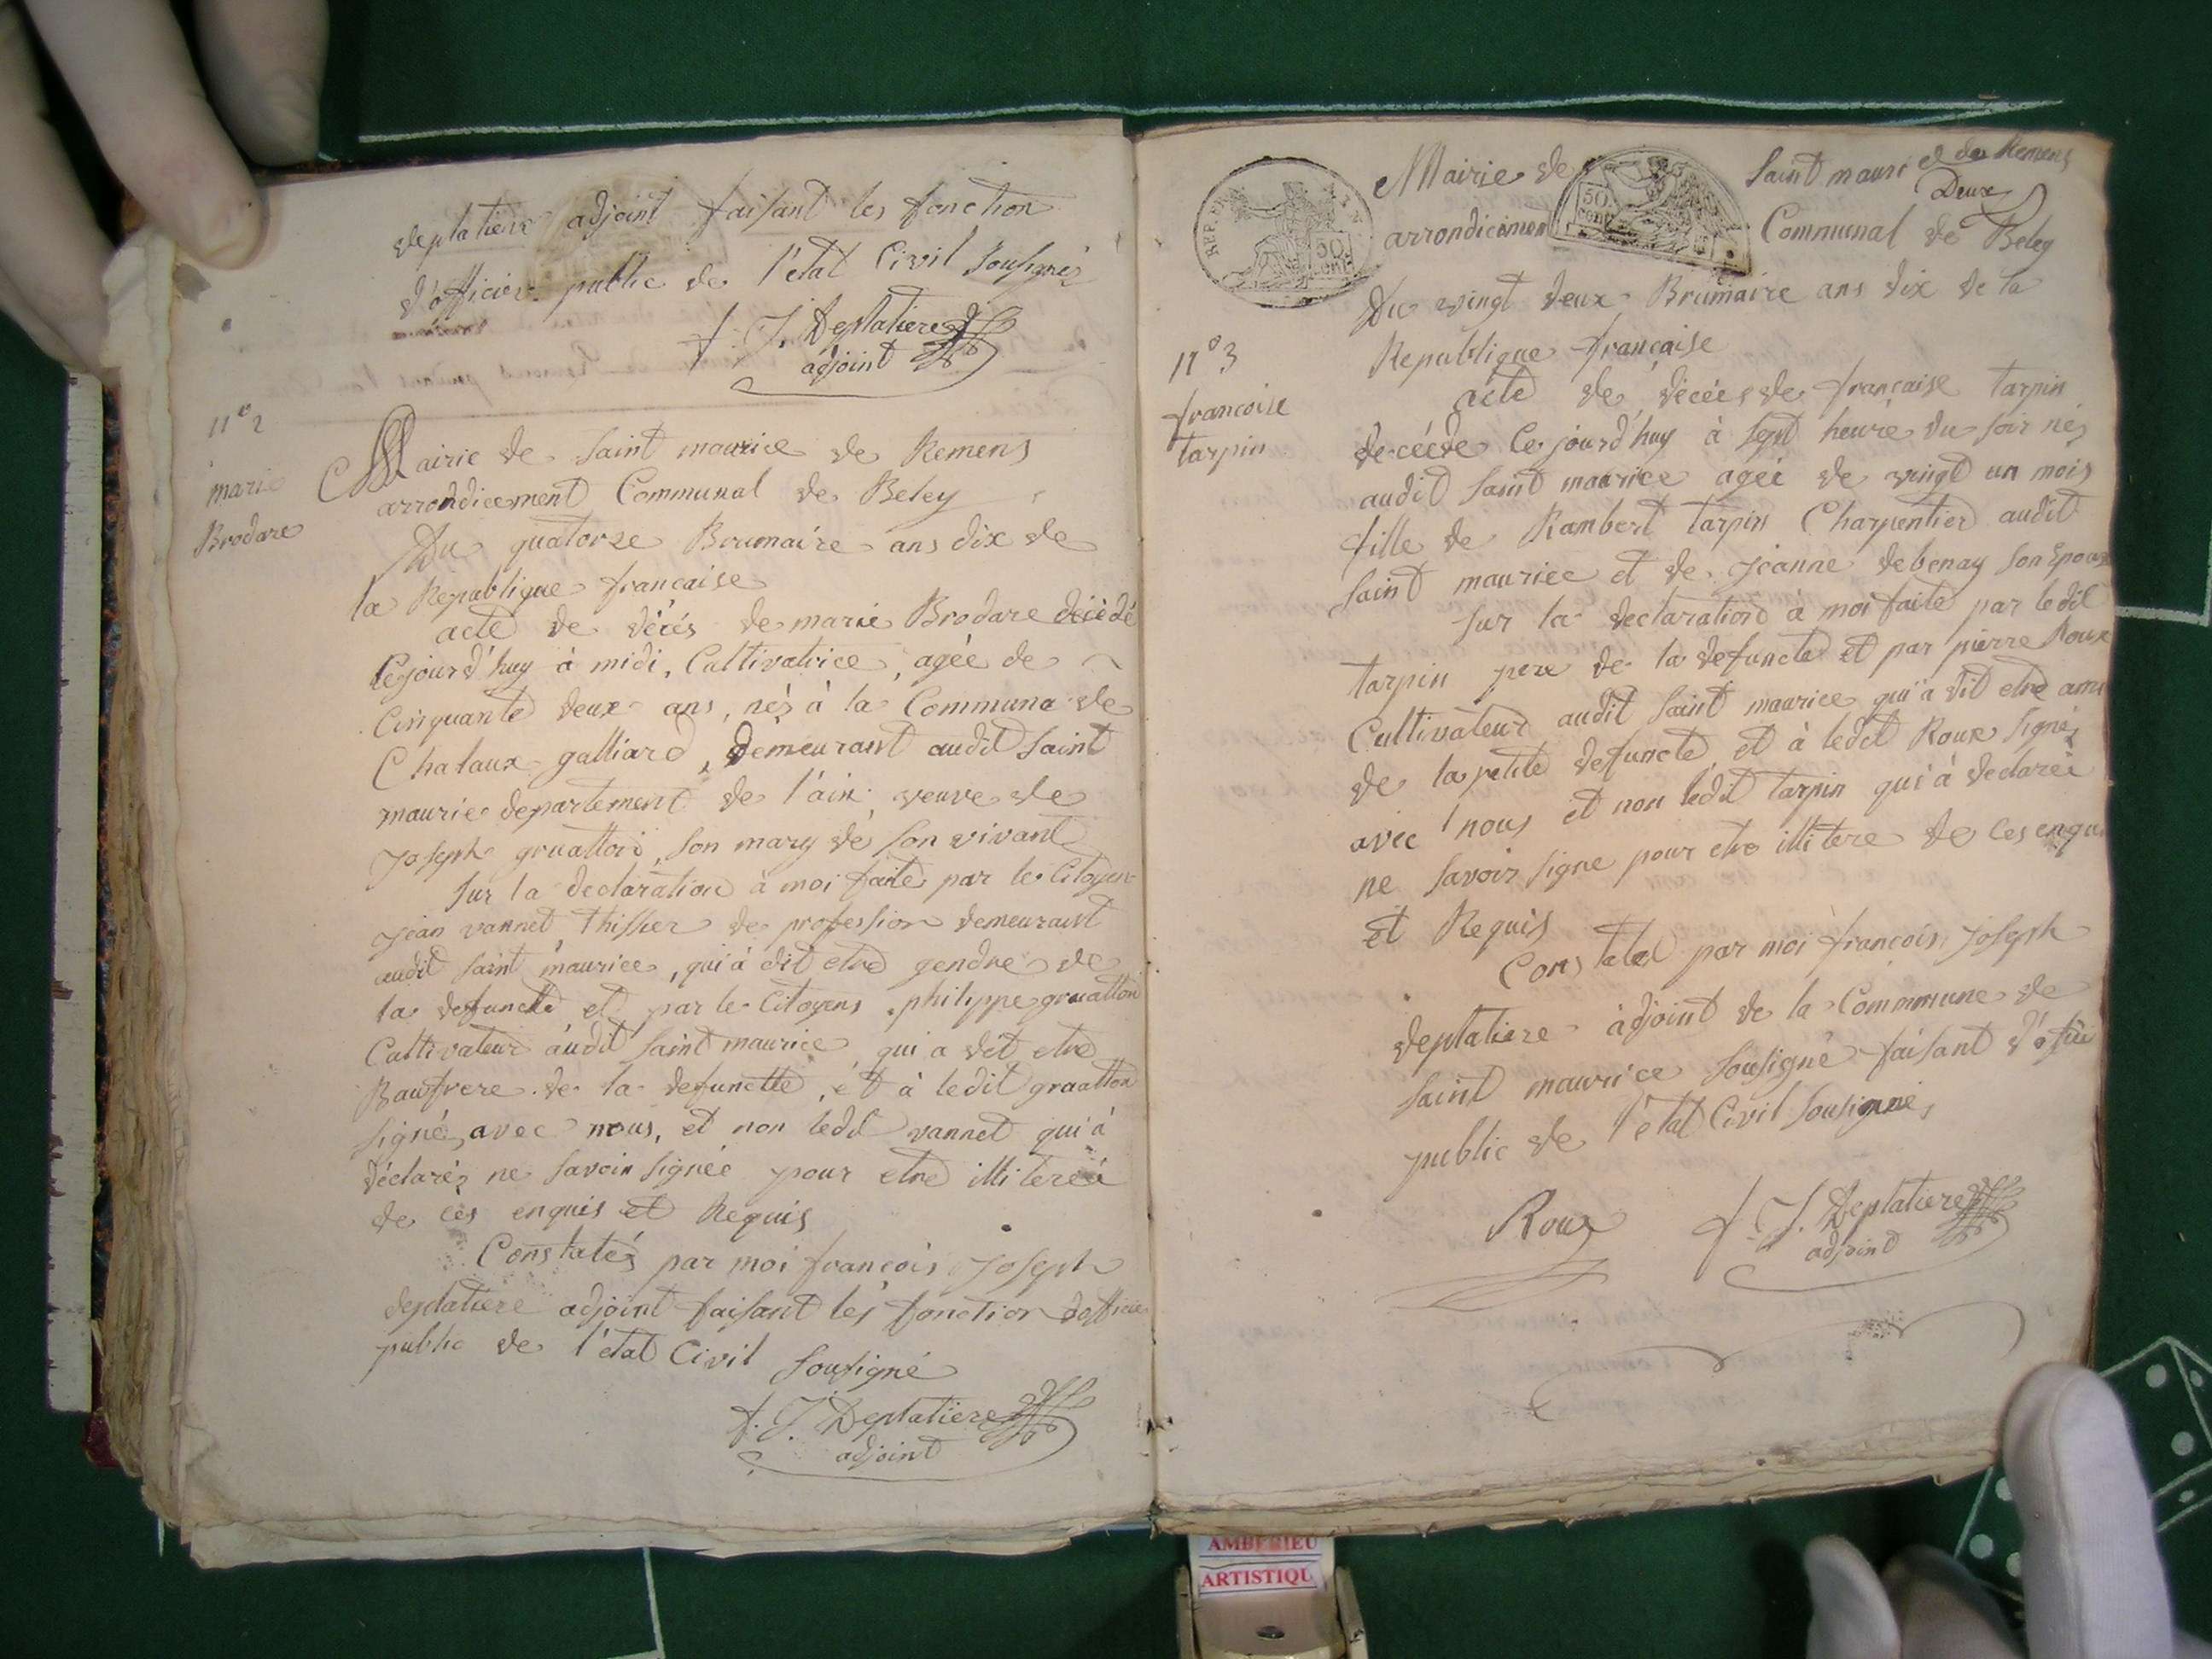 deplatiere adjoint faisant les fonction
d'officier public de l'état Civil Sousignéz
f. J. Deplatiere
adjoint
n° 2
marie
Brodare
Mairie de Saint maurice de Remens
arrondicement Communal de Beley
Du quatorze Brumaire ans dix de
la Republique francaise
acte de décés de marie Brodare décédé
Cejourd'huy à midi, Cultivatrice, agée de
Cinquante deux ans, néz à la Commune de
Chataux galliard, demeurant audit Saint
maurie departement de l'ain veuve de
Joseph gruatton, son mary dé son vivant
Sur la declaration a moi faite par le Citoyen
jean vannet thissier de profession demeurant
audit Saint maurice, qui à dit etre gendre de
la defuncte et par le Citoyens philippe gruatton
Cultivateur audit Saint maurice qui a dit etre
Baufrere de la defunctte, et à ledit gruatton
signé, avec nous, et non ledit vannet qui à
déclaréz ne savoir signée pour etre illiterée
de ces enquis et Requis
Constatéz par moi francois Joseph
deplatiere adjoint faisant les fonction d'officier
public de l'état Civil Sousigné
f. J. Deplatiere
adjoint
Mairie de Saint mauri e de Remens
Deux
arrondicemen Communal de Beley
REP. FRA
50 cent
50 cent
Du vingt deux Brumaire ans dix de la
Republique française
n° 3
francoise
tarpin
acte de décées de française tarpin
decéede Ce jourd'huy à sept heure du soir néz
audit Saint maurice agéé de vingt un mois
fille de Rambert tarpin Charpentier audit
Saint maurice et de jeanne debenay son Epouse
Sur la declaration à moi faite par ledit
tarpin pere de la defuncte et par pierre Roux
Cultivateur audit Saint maurice qui a dit etre ami
de la petite defuncte, et à ledit Roux signéz
avec nous et non ledit tarpin qui à declaréé
ne savoir signe pour etre illitere de ces enqui
et Requis
Constated par moi francois Joseph
deplatiere adjoint de la Commune de
Saint maurice Sousigné faisant d'ofici
public de l'état Civil Sousignéz
Roux
f. J. Deplatiere
adjoint
AMBERIEU
ARTISTIQU